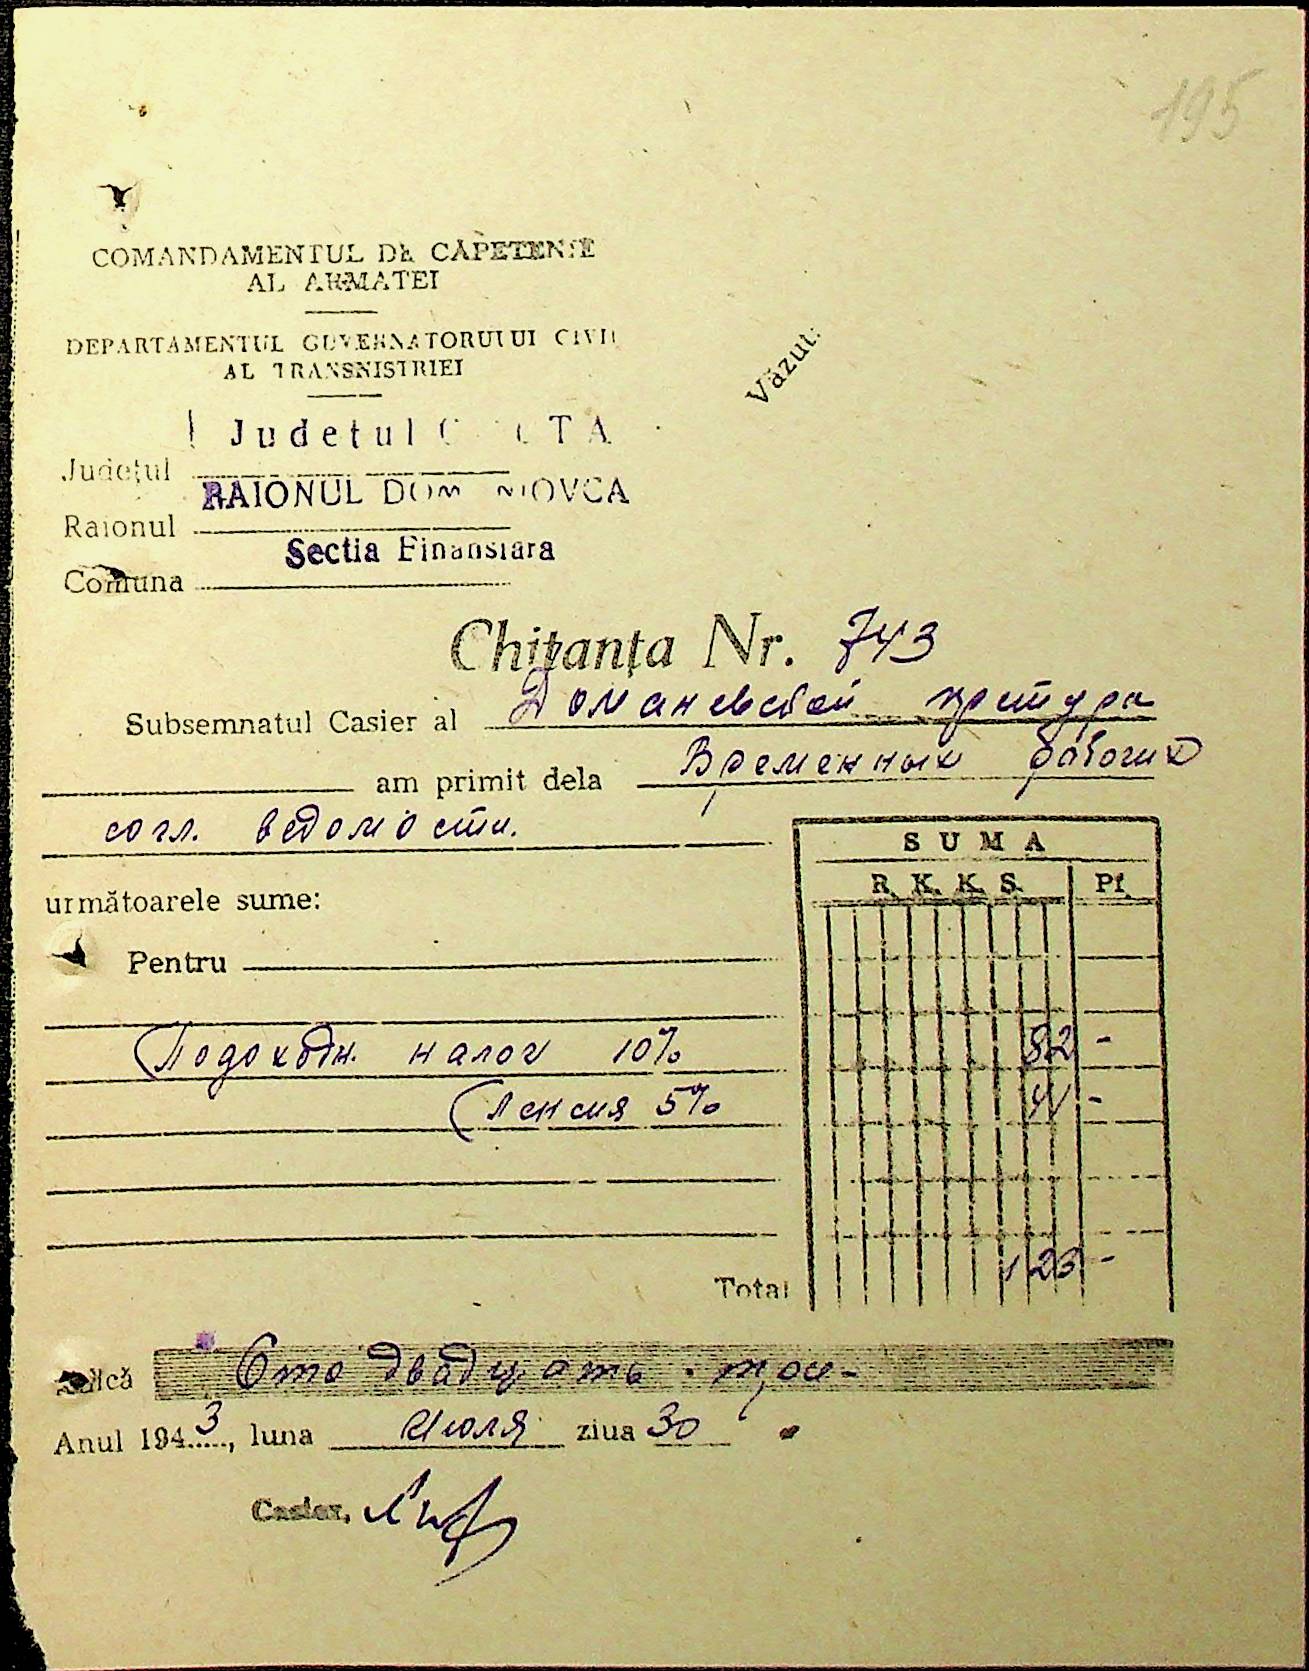 195
COMANDAMENTUL DE CĂPETENIE
AL ARMATEI
DEPARTAMENTUL GUVERNATORULUI CIVIL
AL TRANSNISTRIEI
Văzut:
Judetul G LTA
Județul
RAIONUL DOM NIOVCA
Raionul
Sectia Finansiara
Comuna
Chitanța Nr. 743
Subsemnatul Casier al Доманевской претура
am primit dela Временных рабочих
согл. ведомости.
S U M A
R. K. K. S. Pf.
următoarele sume:
Pentru
Подоходн. налог 10% 82 -
Пенсия 5% 41 -
Total 123 -
Adică Сто двадцать три -
Anul 1943, luna Июля ziua 30
Casier,